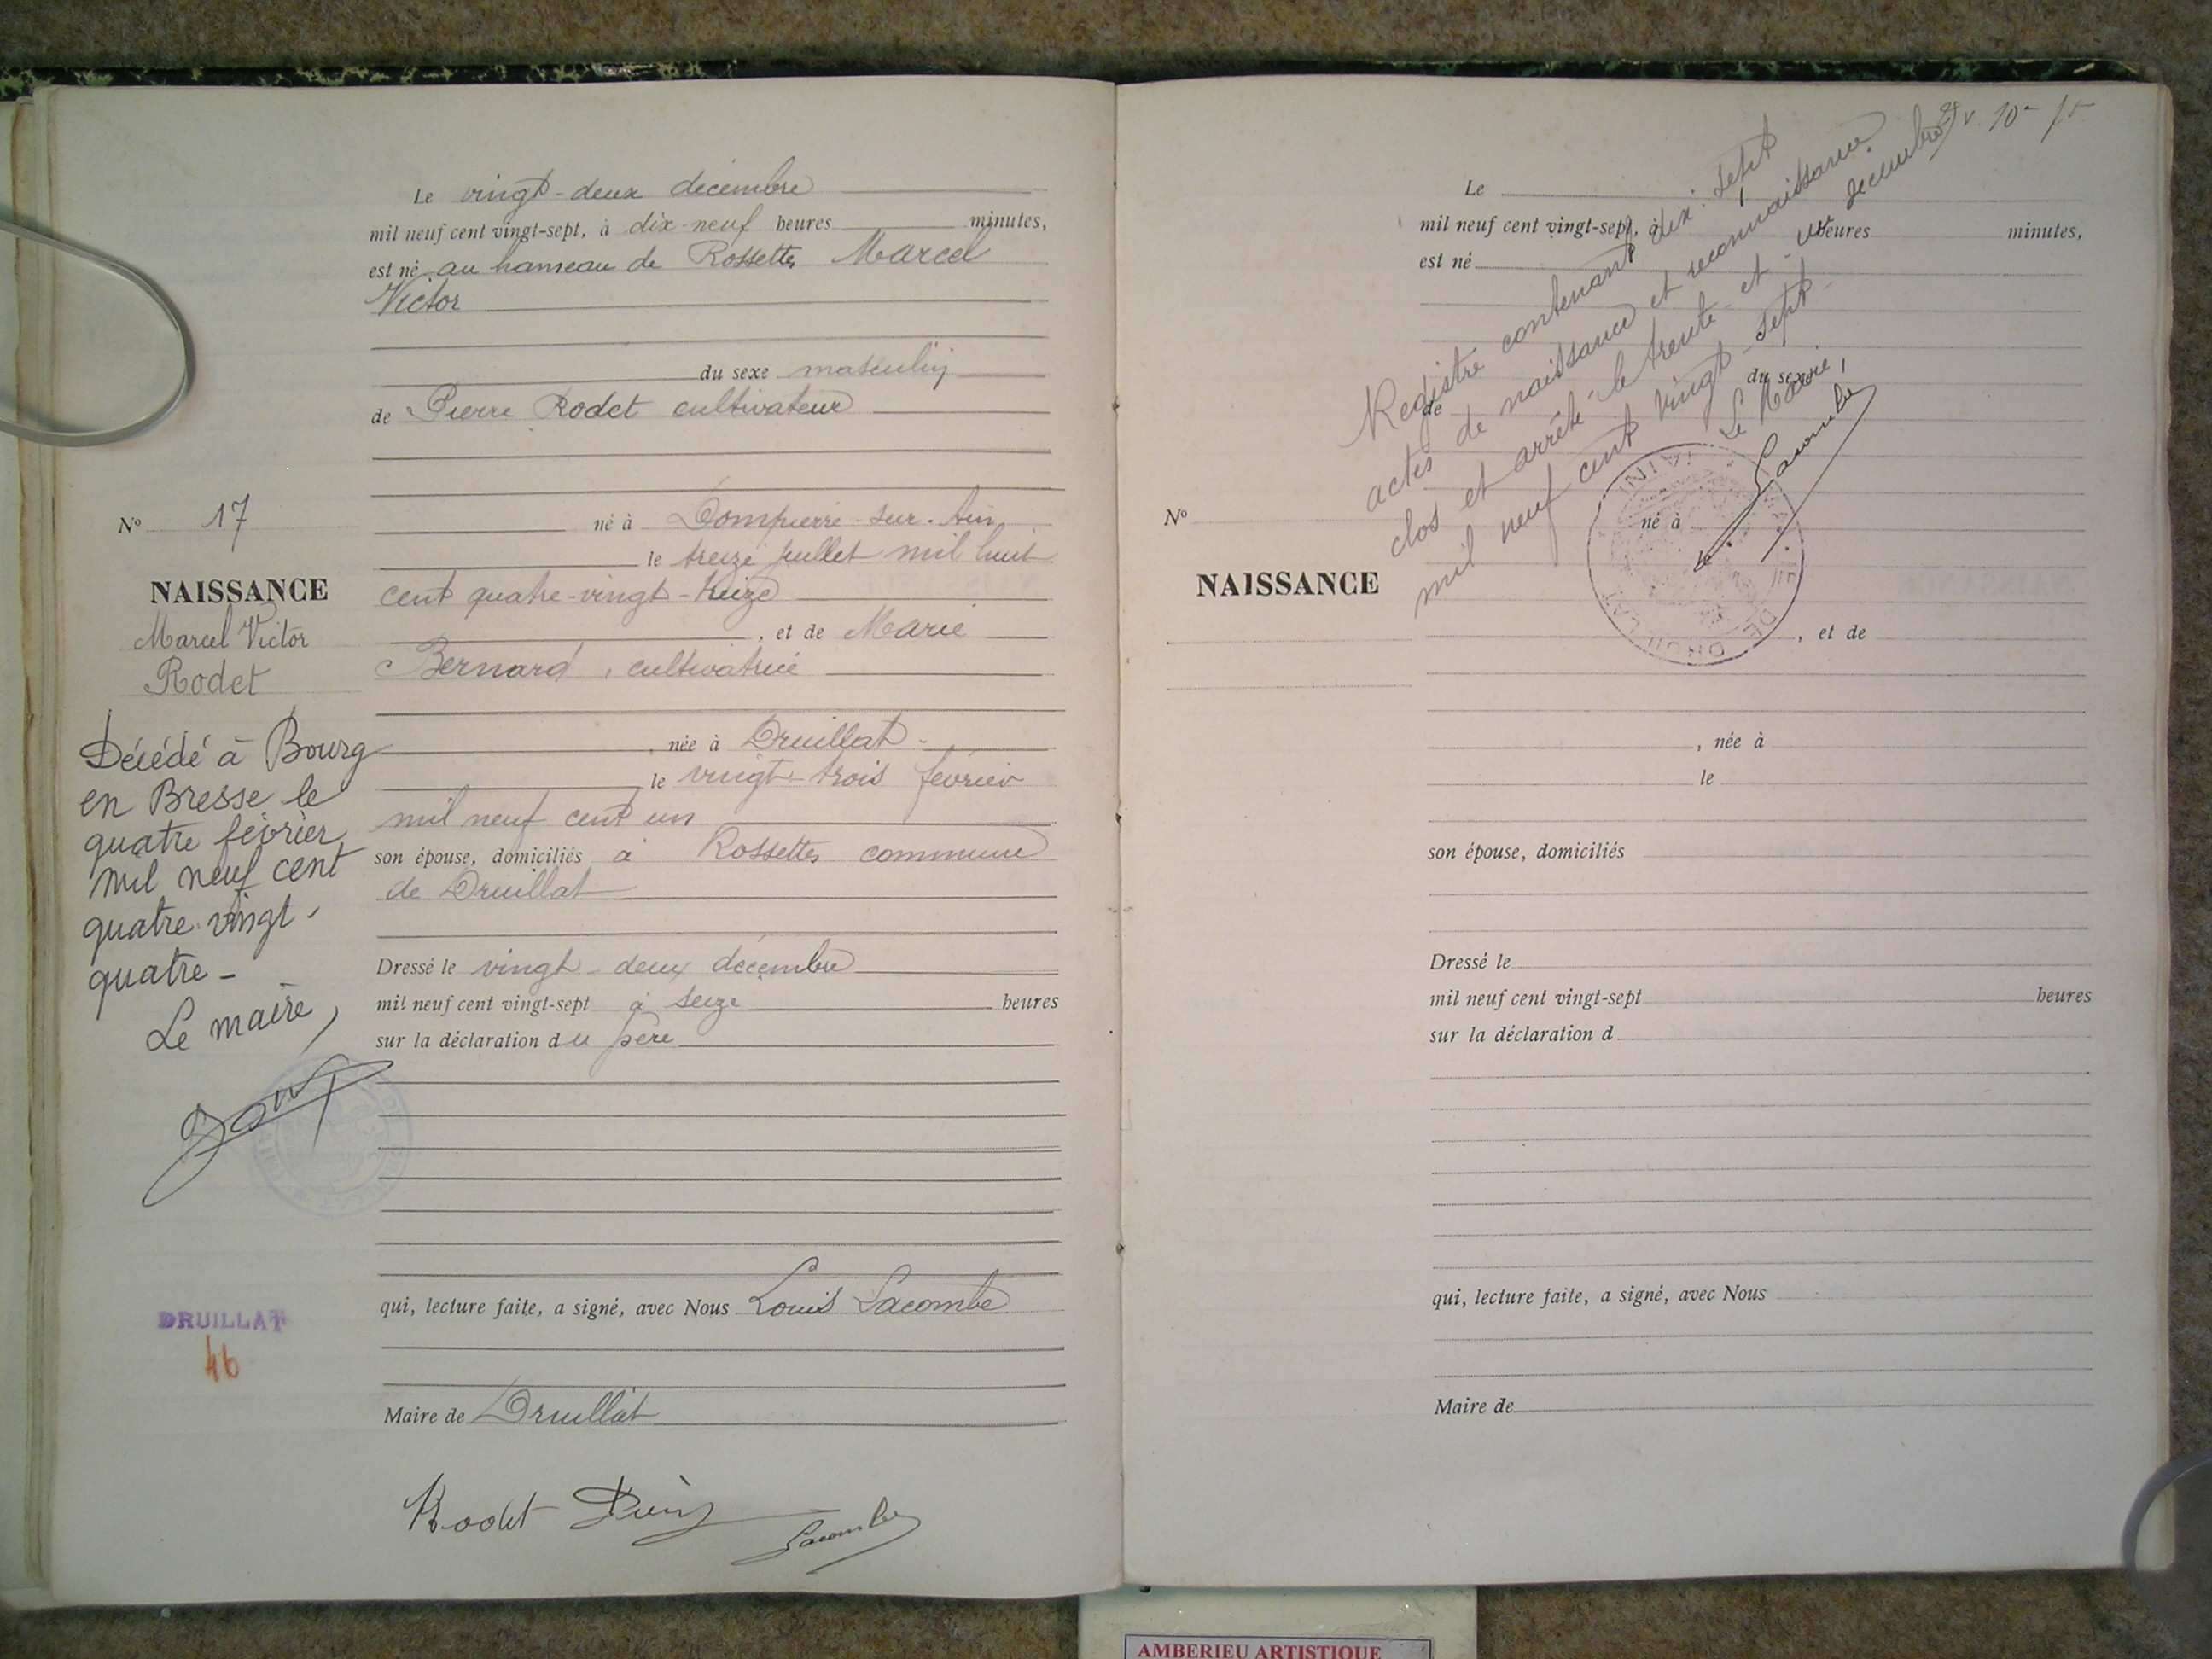 Le vingt-deux décembre
mil neuf cent vingt-sept, à dix-neuf heures minutes,
est né au hameau de Rossettes Marcel
Victor
du sexe masculin
de Pierre Rodet cultivateur
né à Dompierre-sur-Ain
le treize juillet mil huit
cent quatre-vingt-treize
, et de Marie
Bernard, cultivatrice
, née à Druillat
le vingt-trois février
mil neuf cent un
son épouse, domiciliés à Rossettes commune
de Druillat
Dressé le vingt-deux décembre
mil neuf cent vingt-sept à seize heures
sur la déclaration du père
qui, lecture faite, a signé, avec Nous Louis Lacombe
Maire de Druillat
Rodet Lacombe
No 17
NAISSANCE
Marcel Victor
Rodet
Décédé à Bourg
en Bresse le
quatre février
mil neuf cent
quatre-vingt-
quatre-
Le maire,
DRUILLAT
46
Registre contenant dix-sept
actes de naissance et reconnaissance
clos et arrêté le trente-et-un décembre
mil neuf cent vingt-sept
Le Maire,
Lacombe
Le
mil neuf cent vingt-sept, à heures minutes,
est né
du sexe
de
No
né à
NAISSANCE
, et de
, née à
le
son épouse, domiciliés
Dressé le
mil neuf cent vingt-sept heures
sur la déclaration d
qui, lecture faite, a signé, avec Nous
Maire de
AMBERIEU ARTISTIQUE